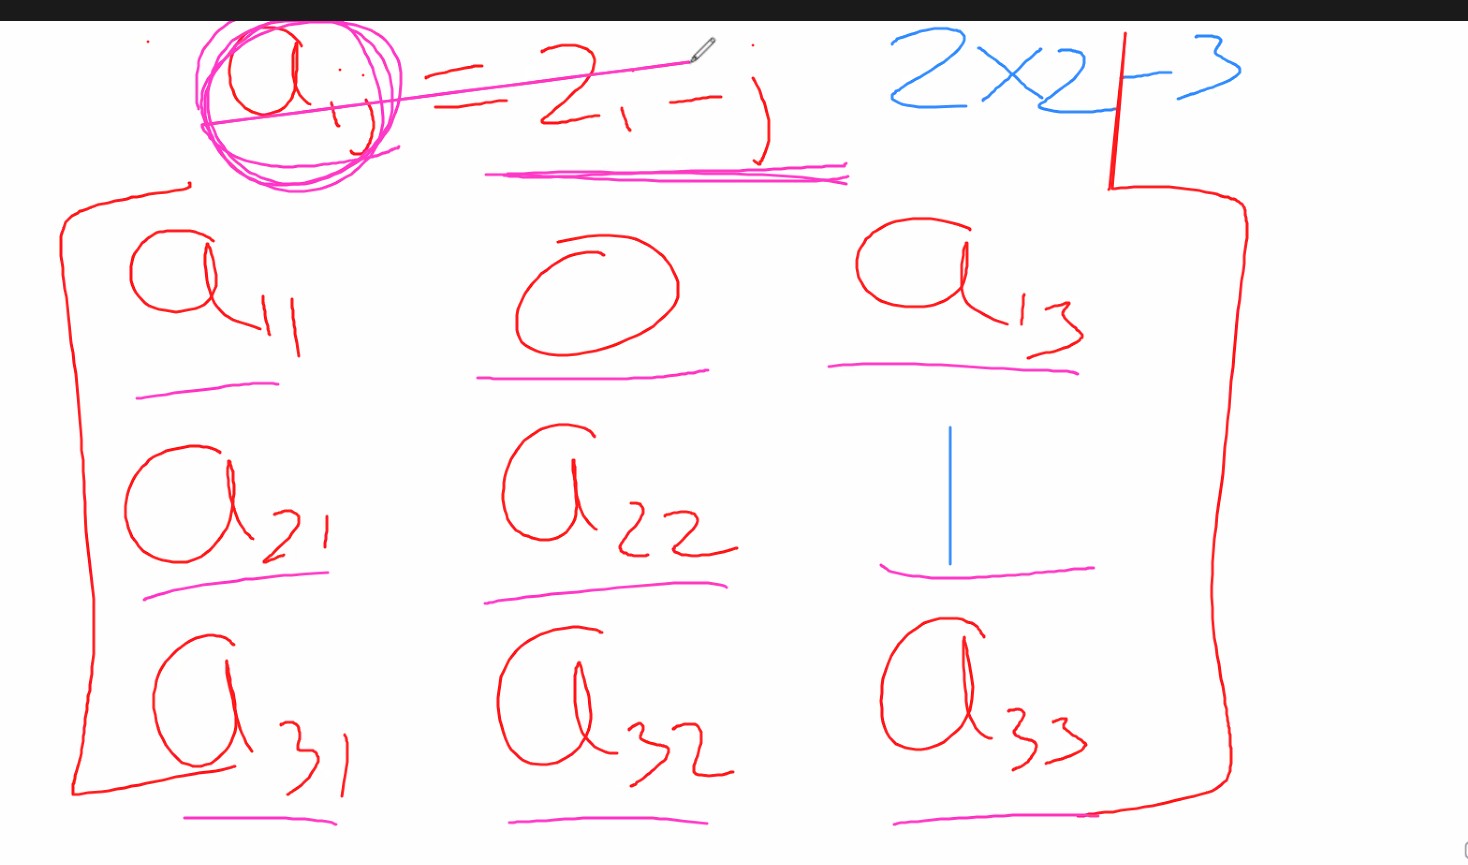 aij = 2i - j 2×2-3
a11 0 a13
a21 a22 1
a31 a32 a33